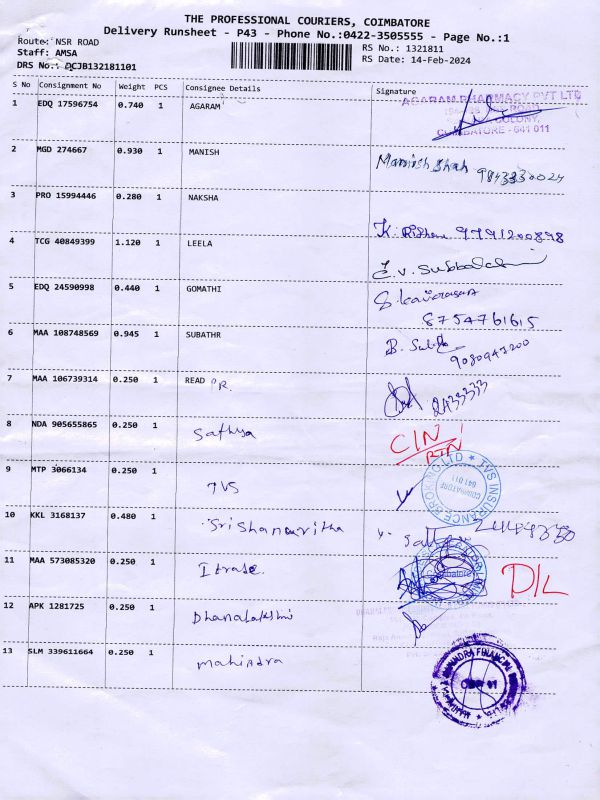 THE PROFESSIONAL COURIERS, COIMBATORE
Delivery Runsheet - P43 - Phone No.:0422-3505555 - Page No.:1
Route: NSR ROAD
RS No.: 1321811
Staff: AMSA
RS Date: 14-Feb-2024
DRS No.: DCJB132181101
S No Consignment No Weight PCS Consignee Details Signature
1 EDQ 17596754 0.740 1 AGARAM
AGARAM PHARMACY PVT LTD
ROAD
COLONY,
COIMBATORE - 641 011
2 MGD 274667 0.930 1 MANISH
Manish Shah 9843330024
3 PRO 15994446 0.280 1 NAKSHA
9791200898
4 TCG 40849399 1.120 1 LEELA
5 EDQ 24590998 0.440 1 GOMATHI
8754761615
6 MAA 108748569 0.945 1 SUBATHR
7 MAA 106739314 0.250 1 READ P.R.
2433333
8 NDA 905655865 0.250 1 Sathya
CIN
RTN
9 MTP 3066134 0.250 1 TVS
TVS INSURANCE BROKING LTD
COIMBATORE
641 011
10 KKL 3168137 0.480 1
11 MAA 573085320 0.250 1 Itrade.
Coimbatore
D/L
12 APK 1281725 0.250 1 Dhanalakshmi
13 SLM 339611664 0.250 1 Mahindra
MAHINDRA FINANCIAL